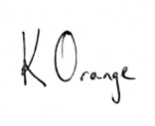 K Orange